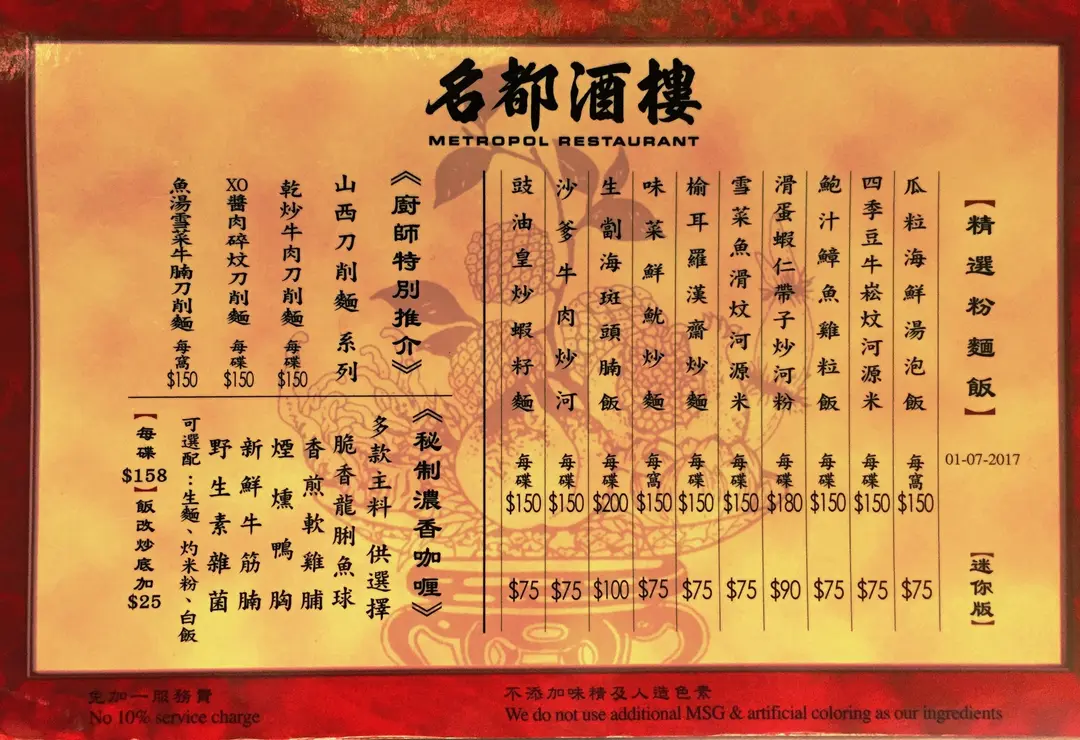 名都酒樓
METROPOL RESTAURANT
【精選粉麵飯】
01-07-2017
【迷你版】
瓜粒海鮮湯泡飯 每窩 $150 $75
四季豆牛崧炆河源米 每碟 $150 $75
鮑汁鱆魚雞粒飯 每碟 $150 $75
滑蛋蝦仁帶子炒河粉 每碟 $180 $90
雪菜魚滑炆河源米 每碟 $150 $75
榆耳羅漢齋炒麵 每碟 $150 $75
味菜鮮魷炒麵 每窩 $150 $75
生劏海斑頭腩飯 每碟 $200 $100
沙爹牛肉炒河 每碟 $150 $75
豉油皇炒蝦籽麵 每碟 $150 $75
《廚師特別推介》
山西刀削麵系列
乾炒牛肉刀削麵 每碟 $150
XO醬肉碎炆刀削麵 每碟 $150
魚湯雪菜牛腩刀削麵 每窩 $150
《秘制濃香咖喱》
多款主料 供選擇
脆香龍脷魚球
香煎軟雞脯
煙燻鴨胸
新鮮牛筋腩
野生素雜菌
可選配：生麵、灼米粉、白飯
【每碟$158】飯改炒底加$25
免加一服務費
No 10% service charge
不添加味精及人造色素
We do not use additional MSG & artificial coloring as our ingredients